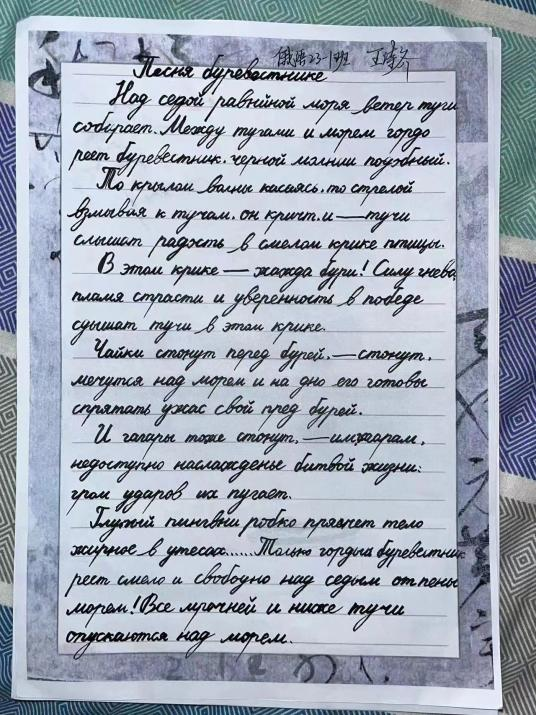 俄语23-1班 王琦齐
Песня буревестнике
Над седой равниной моря ветер тучи
собирает. Между тучами и морем гордо
реет буревестник. черной молнии подобный.
То крылом волны касаясь. то стрелой
взмывая к тучам. он кричт. и — тучи
слышат радость в смелом крике птицы.
В этом крике — жажда бури! Силу гнева,
пламя страсти и уверенность в победе
слышат тучи в этом крике.
Чайки стонут перед бурей. — стонут.
мечутся над морем и на дно его готовы
спрятать ужас свой пред бурей.
И гагары тоже стонут. — им,гагарам.
недоступно наслажденье битвой жизни:
гром ударов их пугает.
Глупый пингвин робко прячет тело
жирное в утесах...... Только гордый буревестник
реет смело и свободно над седым от пены
морем! Все мрочней и ниже тучи
опускаются над морем.